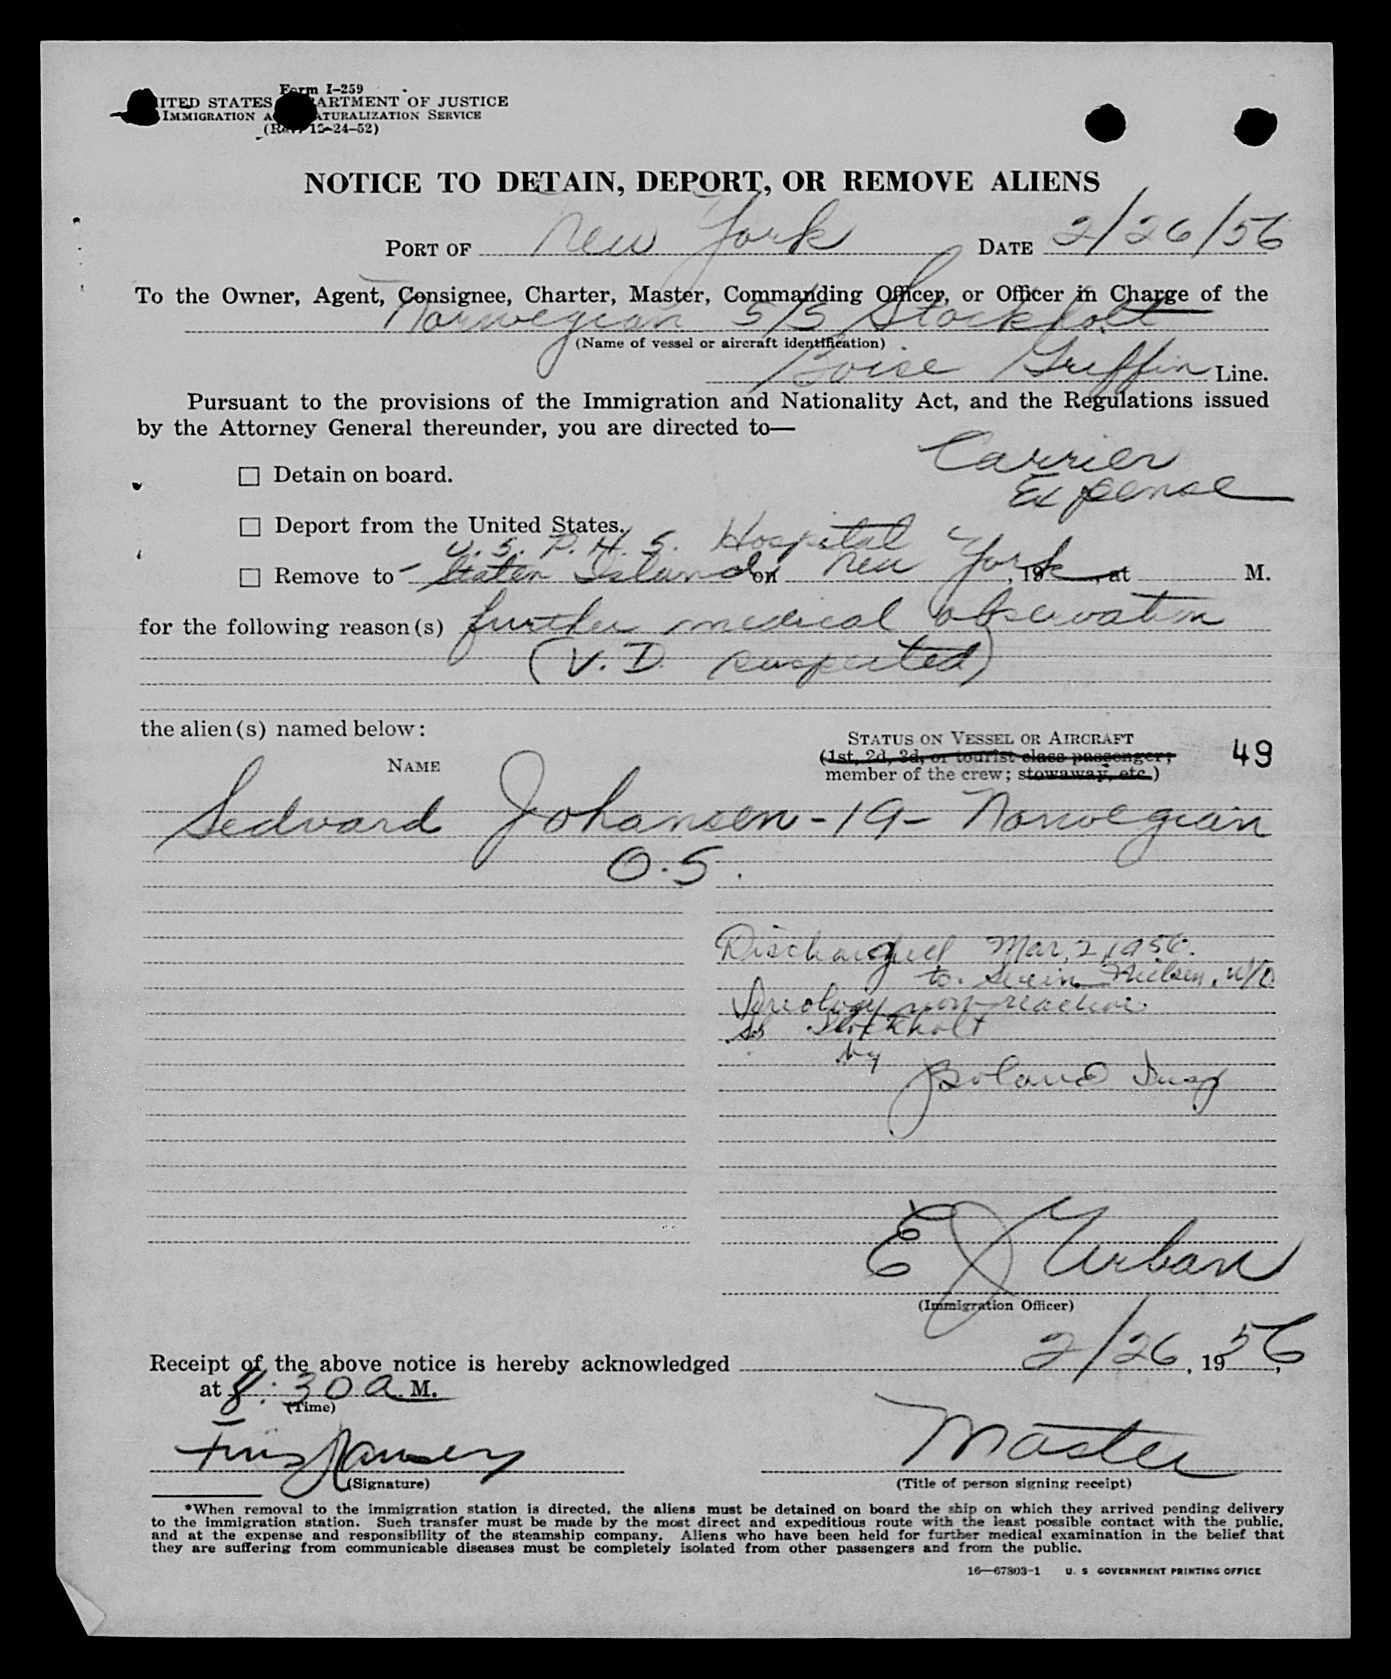 Form I-259
UNITED STATES DEPARTMENT OF JUSTICE
IMMIGRATION AND NATURALIZATION SERVICE
(Rev. 12-24-52)
NOTICE TO DETAIN, DEPORT, OR REMOVE ALIENS
PORT OF New York DATE 2/26/56
To the Owner, Agent, Consignee, Charter, Master, Commanding Officer, or Officer in Charge of the
Norwegian S/S Stockholt
(Name of vessel or aircraft identification)
Boise Griffin Line.
Pursuant to the provisions of the Immigration and Nationality Act, and the Regulations issued
by the Attorney General thereunder, you are directed to—
Carrier
Expense
☐ Detain on board.
☐ Deport from the United States.
U. S. P. H. S. Hospital
☐ Remove to - Staten Island on New York, 19, at M.
for the following reason(s) further medical observation
(V. D. suspected)
the alien(s) named below:
STATUS ON VESSEL OR AIRCRAFT
NAME
(1st, 2d, 3d, or tourist class passenger;
member of the crew; stowaway, etc.)
49
Sedvard Johansen - 19 - Norwegian
O.S.
Discharged Mar. 2, 1956.
to Nielsen,
non-reactive
Stockholt
by
Boland Insp
E J Urban
(Immigration Officer)
Receipt of the above notice is hereby acknowledged 2/26, 1956,
at 8:30 a M.
(Time)
Master
(Signature)
(Title of person signing receipt)
*When removal to the immigration station is directed, the aliens must be detained on board the ship on which they arrived pending delivery
to the immigration station. Such transfer must be made by the most direct and expeditious route with the least possible contact with the public,
and at the expense and responsibility of the steamship company. Aliens who have been held for further medical examination in the belief that
they are suffering from communicable diseases must be completely isolated from other passengers and from the public.
16—67803-1 U. S GOVERNMENT PRINTING OFFICE